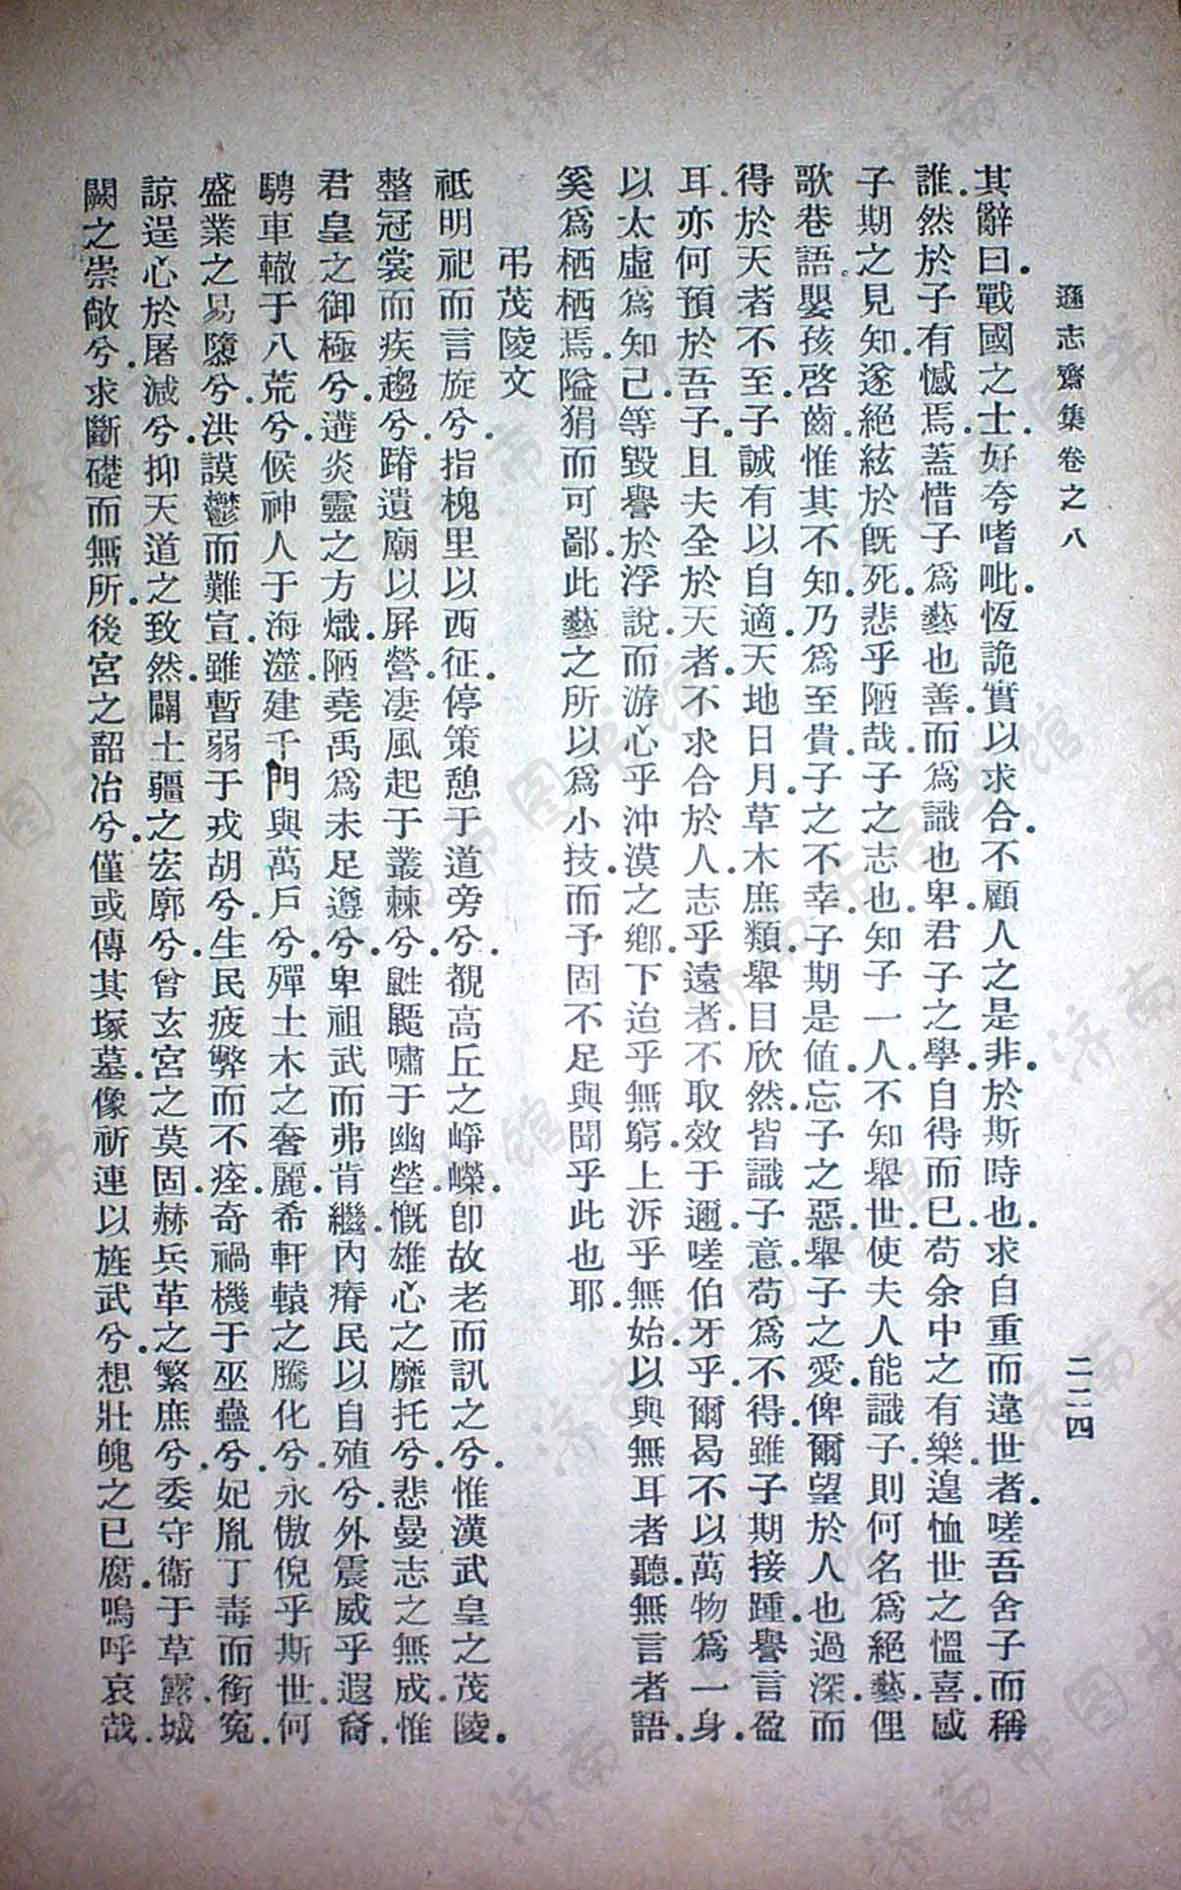 遜志齋集卷之八
二二四
其辭曰戰國之士好夸嗜毗恆詭實以求合不顧人之是非於斯時也求自重而違世者嗟吾舍子而稱
誰然於子有憾焉蓋惜子爲藝也善而爲識也卑君子之學自得而已苟余中之有樂遑恤世之慍喜感
子期之見知遂絕絃於既死悲乎陋哉子之志也知子一人不知舉世使夫人能識子則何名爲絕藝俚
歌巷語嬰孩啓齒惟其不知乃爲至貴子之不幸子期是値忘子之惡舉子之愛俾爾望於人也過深而
得於天者不至子誠有以自適天地日月草木庶類舉目欣然皆識子意苟爲不得雖子期接踵譽言盈
耳亦何預於吾子且夫全於天者不求合於人志乎遠者不取效于邇嗟伯牙乎爾曷不以萬物爲一身
以太虛爲知己等毀譽於浮說而游心乎沖漠之鄉下迨乎無窮上泝乎無始以與無耳者聽無言者語
奚爲栖栖焉隘狷而可鄙此藝之所以爲小技而予固不足與聞乎此也耶
弔茂陵文
祗明祀而言旋兮指槐里以西征停策憩于道旁兮覩高丘之崢嶸卽故老而訊之兮惟漢武皇之茂陵
整冠裳而疾趨兮蹐遺廟以屏營凄風起于叢棘兮鼪鼯嘯于幽塋慨雄心之靡托兮悲曼志之無成惟
君皇之御極兮遘炎靈之方熾陋堯禹爲未足遵兮卑祖武而弗肯繼內瘠民以自殖兮外震威乎遐裔
騁車轍于八荒兮候神人于海澨建千門與萬戶兮殫土木之奢麗希軒轅之騰化兮永傲倪乎斯世何
盛業之易隳兮洪謨鬱而難宣雖暫弱于戎胡兮生民疲弊而不痊奇禍機于巫蠱兮妃胤丁毒而銜冤
諒逞心於屠滅兮抑天道之致然闢土疆之宏廓兮曾玄宮之莫固赫兵革之繁庶兮委守衞于草露城
闕之崇敞兮求斷礎而無所後宮之韶冶兮僅或傳其塚墓像祈連以旌武兮想壯魄之已腐嗚呼哀哉